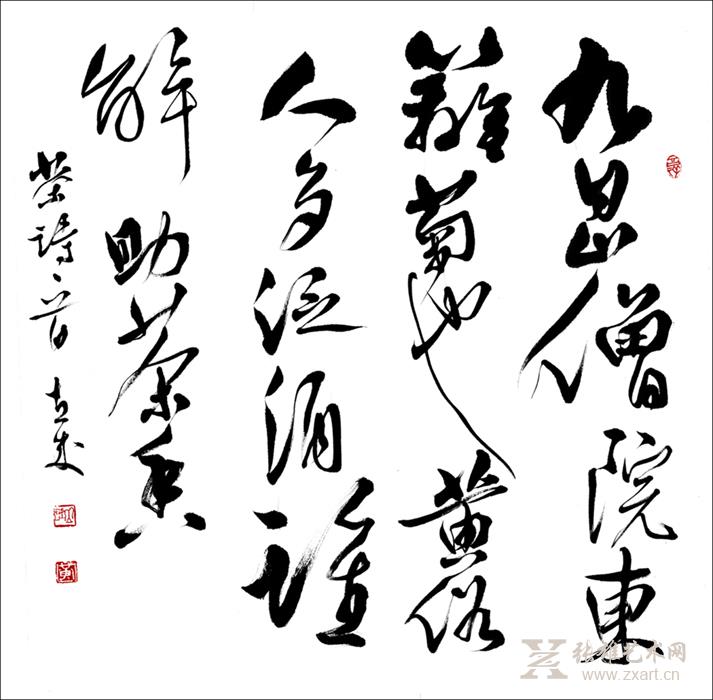 九日山僧院東
籬菊也黃俗
人多泛酒誰
解助茶香
茶詩一首
张雄艺术网
www.zxart.cn